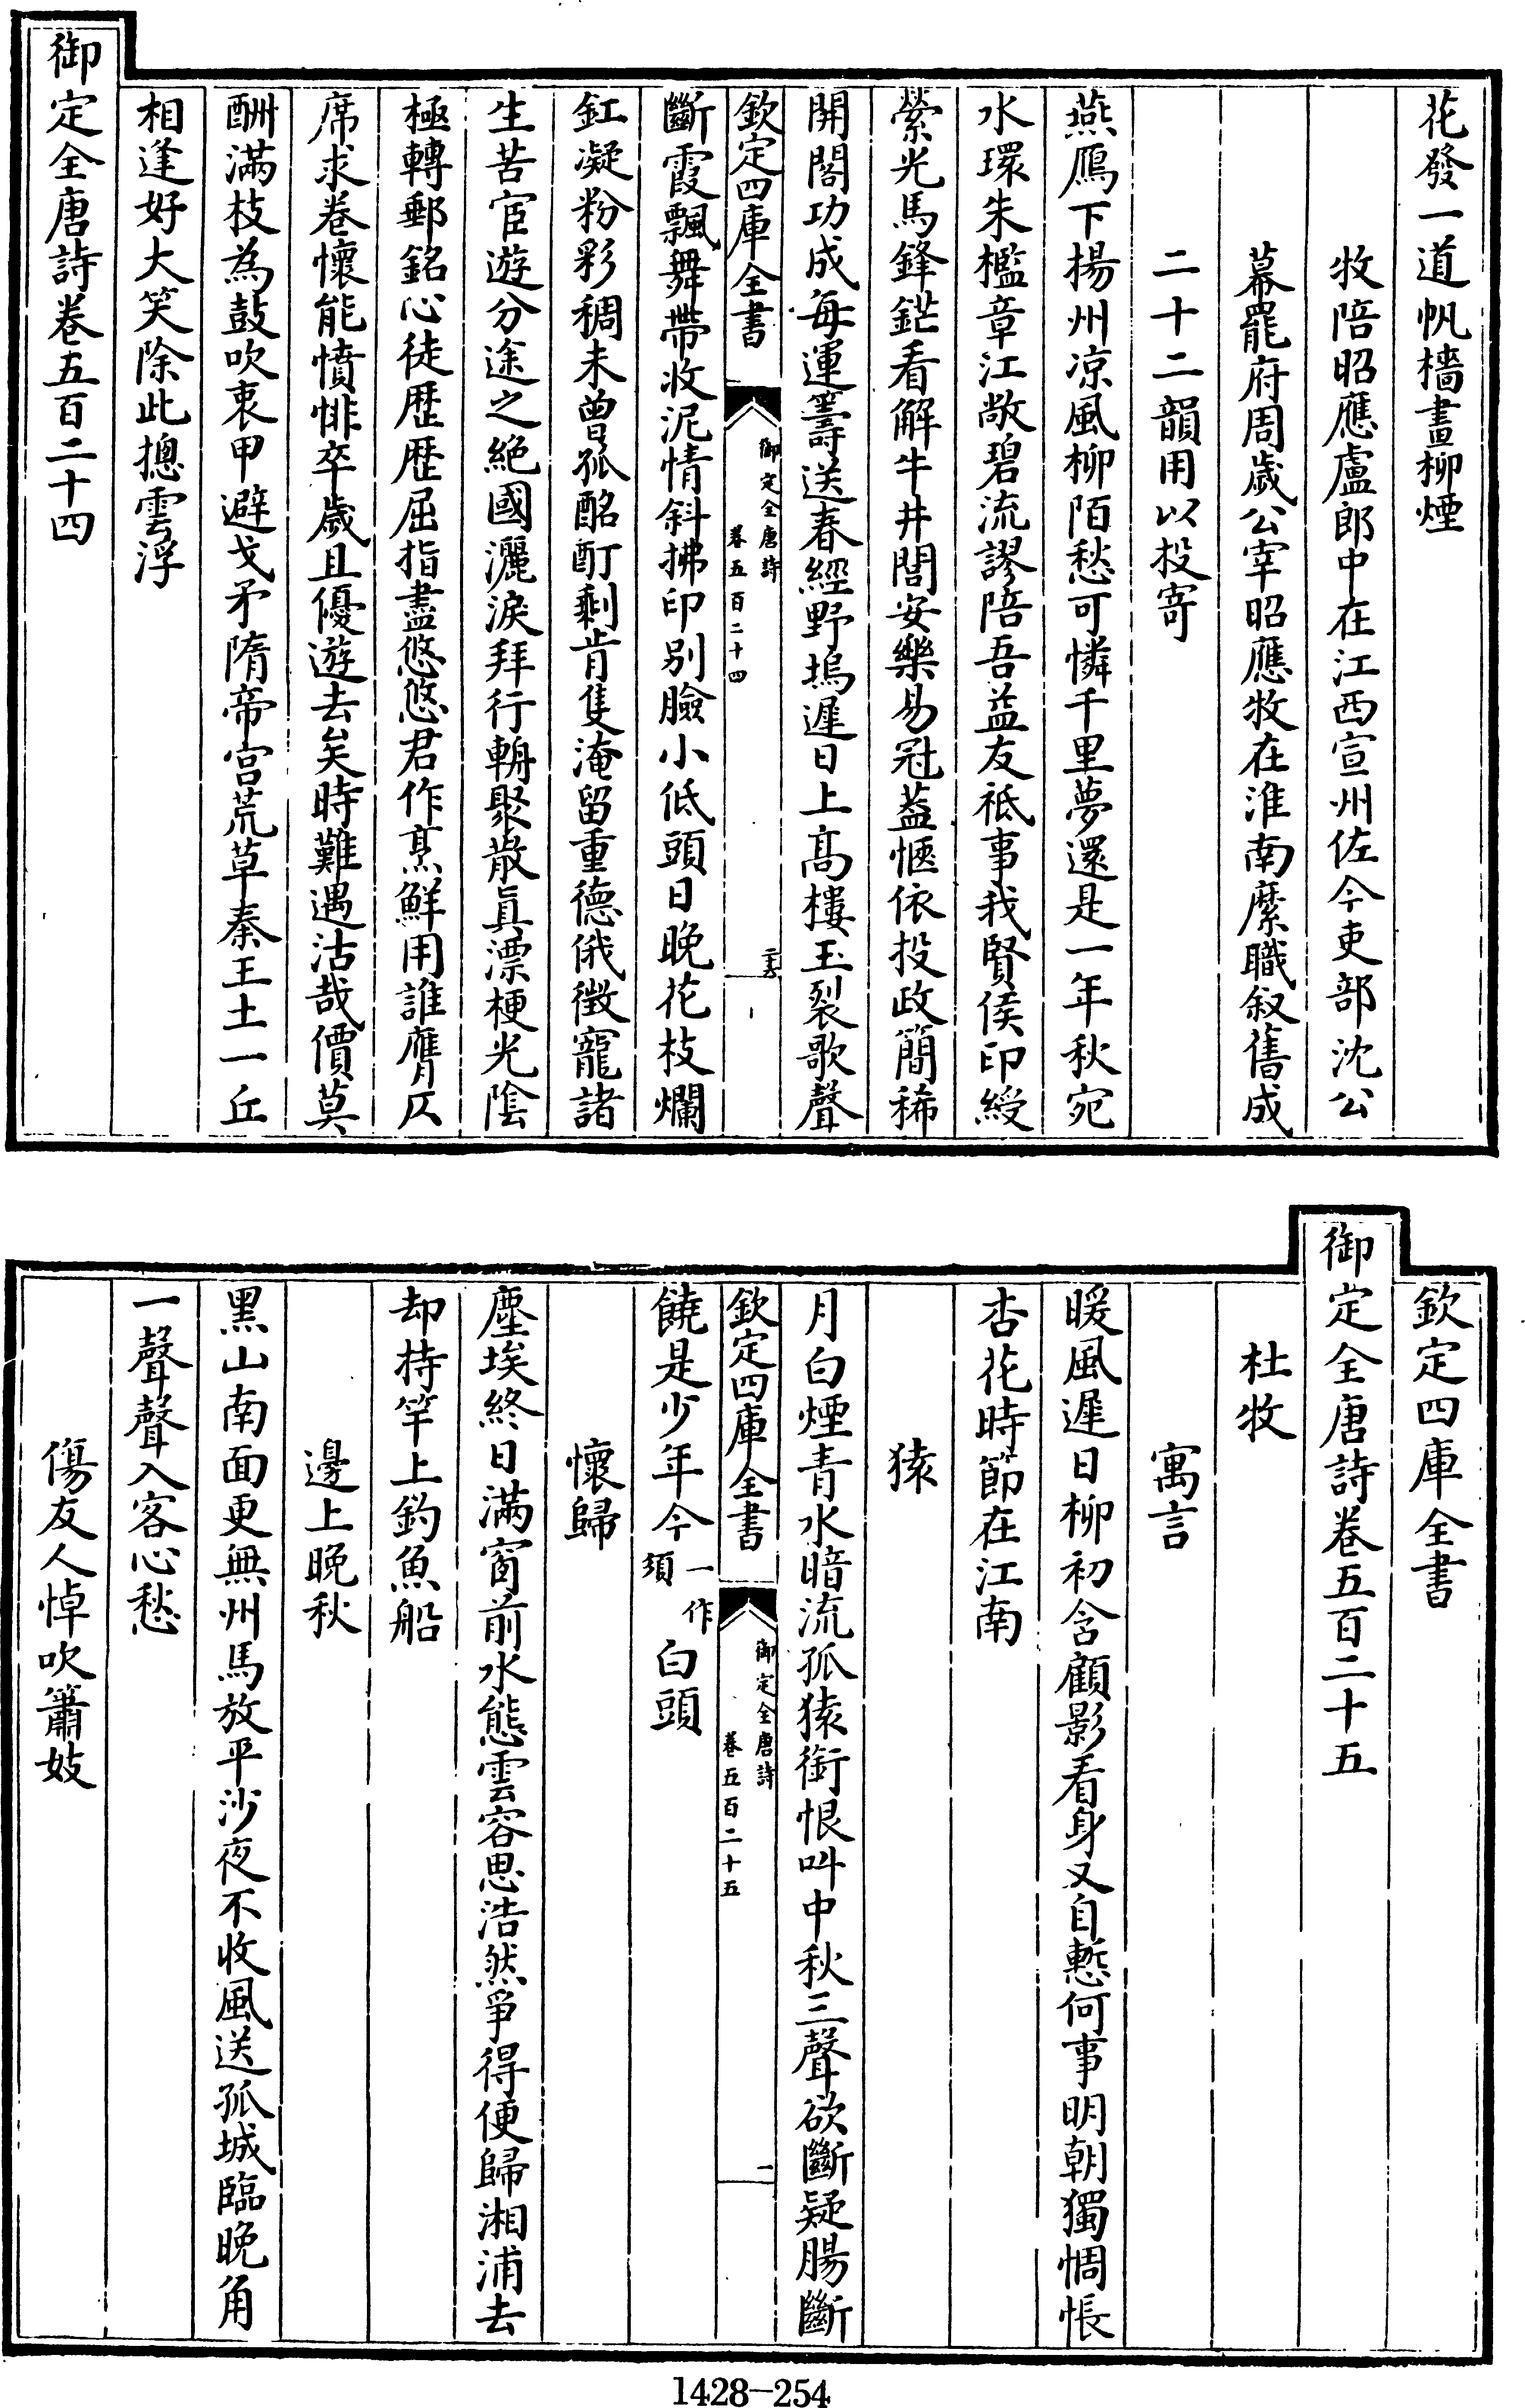 花發一道帆檣畫柳煙
牧陪昭應盧郎中在江西宣州佐今吏部沈公
幕罷府周歲公宰昭應牧在淮南縻職叙舊成
二十二韻用以投寄
燕鴈下揚州凉風柳陌愁可憐千里夢還是一年秋宛
水環朱檻章江敞碧流謬陪吾益友祗事我賢侯印綬
縈光馬鋒鋩看解牛井閭安樂易冠葢愜依投政簡稀
開閤功成每運籌送春經野塢遲日上髙樓玉裂歌聲
欽定四庫全書
御定全唐詩
卷五百二十四
斷霞飄舞帶收泥情斜拂印别臉小低頭日晚花枝爛
釭凝粉彩稠未曽孤酩酊剩肯隻淹留重德俄徴寵諸
生苦宦遊分途之絶國灑淚拜行輈聚散真漂梗光隂
極轉郵銘心徒歴歴屈指盡悠悠君作烹鮮用誰膺仄
席求卷懷能憤悱卒歲且優遊去矣時難遇沽哉價莫
酬滿枝為鼓吹衷甲避戈矛隋帝宫荒草秦王土一丘
相逢好大笑除此揔雲浮
御定全唐詩卷五百二十四
欽定四庫全書
御定全唐詩卷五百二十五
杜牧
寓言
暖風遲日柳初含顧影看身又自慙何事明朝獨惆悵
杏花時節在江南
猿
月白煙青水暗流孤猿銜恨叫中秋三聲欲斷疑腸斷
欽定四庫全書
御定全唐詩
卷五百二十五
一
饒是少年今一作須白頭
懷歸
塵埃終日滿窗前水態雲容思浩然爭得便歸湘浦去
却持竿上釣魚船
邊上晚秋
黑山南面更無州馬放平沙夜不收風送孤城臨晚角
一聲聲入客心愁
傷友人悼吹簫妓
1428-254